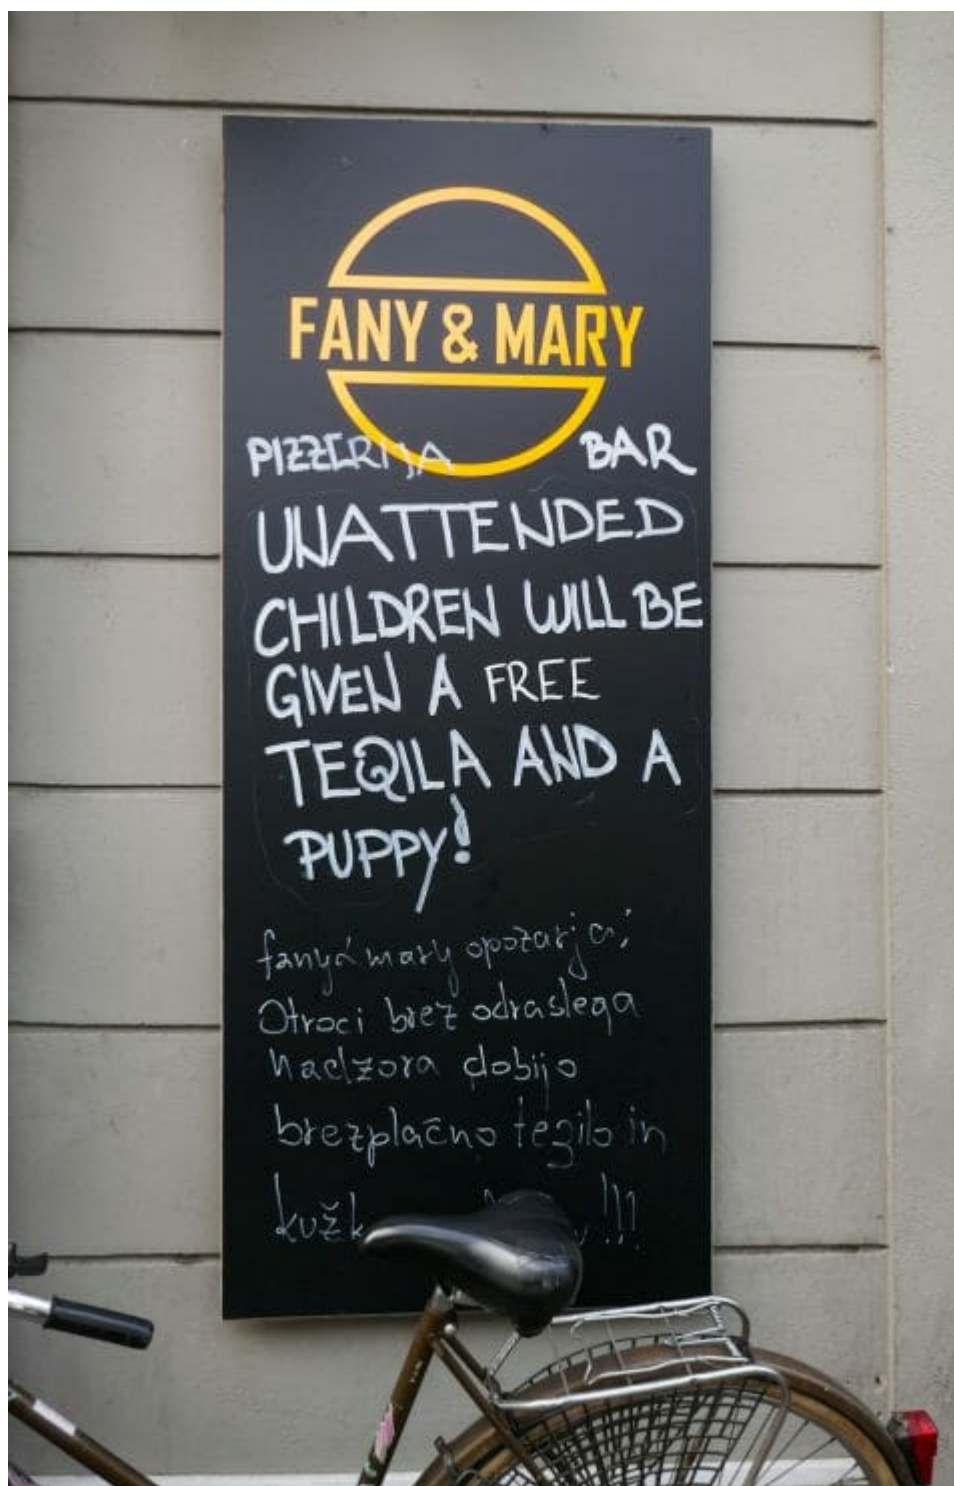 FANY & MARY
PIZZERIJA BAR
UNATTENDED
CHILDREN WILL BE
GIVEN A FREE
TEQILA AND A
PUPPY!
fany & mary opozarja:
Otroci brez odraslega
nadzora dobijo
brezplačno tegilo in
!!!